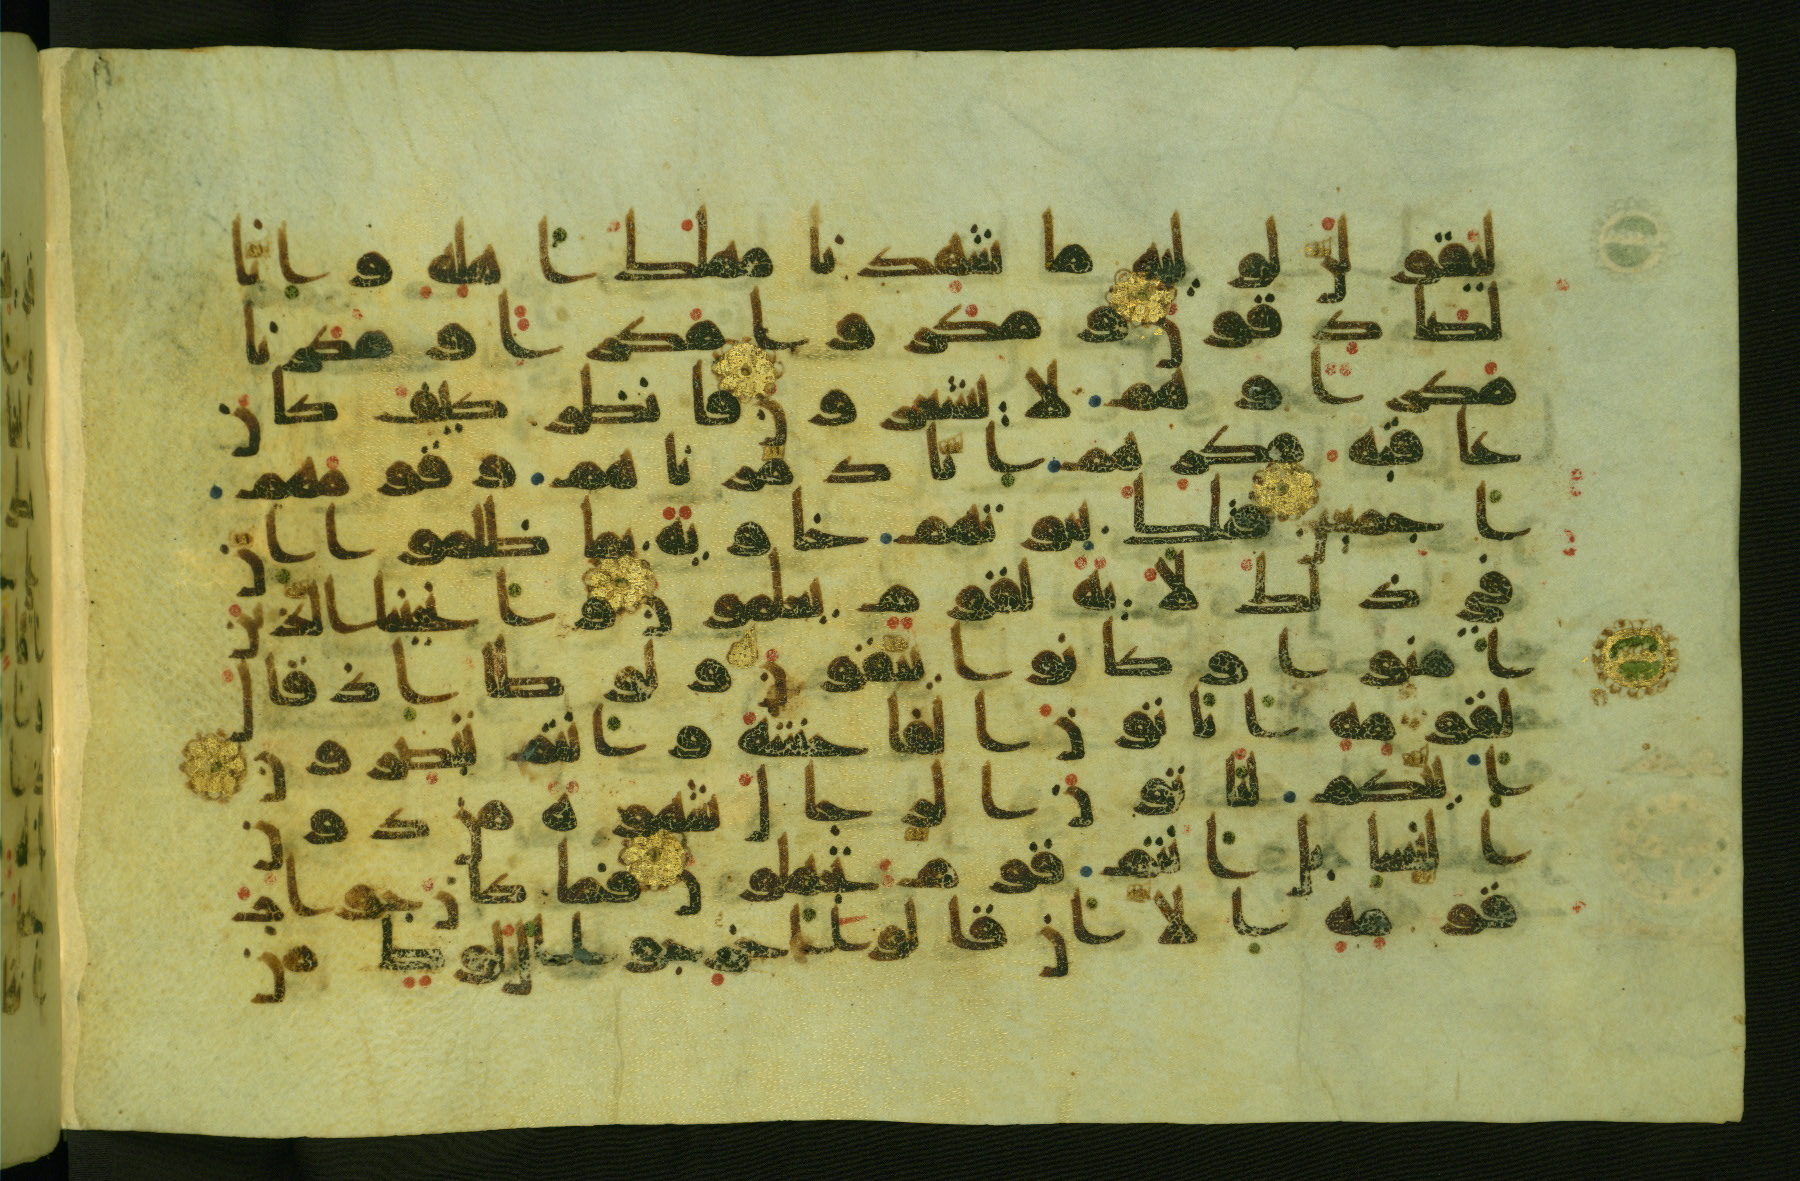 لنقولن لوليه ما شهدنا مهلك اهله وانا
لصدقون ومكروا مكرا ومكرنا
مكرا وهم لا يشعرون فانظر كيف كان
عقبة مكرهم انا دمرنهم وقومهم
اجمعين فتلك بيوتهم خاوية بما ظلموا ان
في ذلك لاية لقوم يعلمون وانجينا الذين
امنوا وكانوا يتقون ولوطا اذ قال
لقومه اتاتون الفحشة وانتم تبصرون
اينكم لتاتون الرجال شهوة من دون
النسا بل انتم قوم تجهلون فما كان جواب
قومه الا ان قالوا اخرجوا ال لوط من